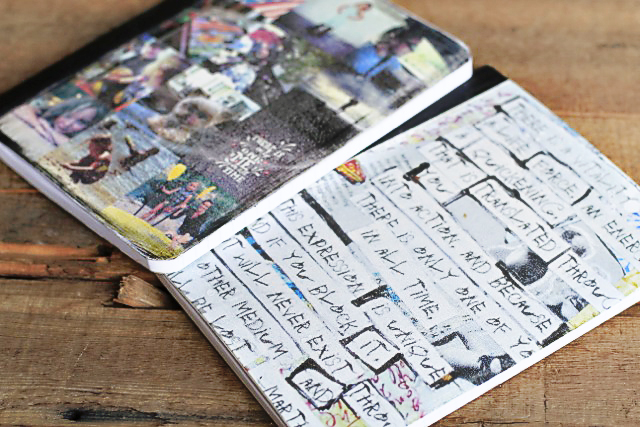 IS A VITA
LIFE FORCE, AN ENER
QUICKENING
THAT IS TRANSLATED THROU
YOU
INTO ACTION, AND BECAUSE
THERE IS ONLY ONE OF YO
IN ALL TIME
THIS EXPRESSION IS UNIQUE
ND IF YOU BLOCK IT,
IT WILL NEVER EXIST THROU
OTHER MEDIUM AND
LL BE LOST
MARTH